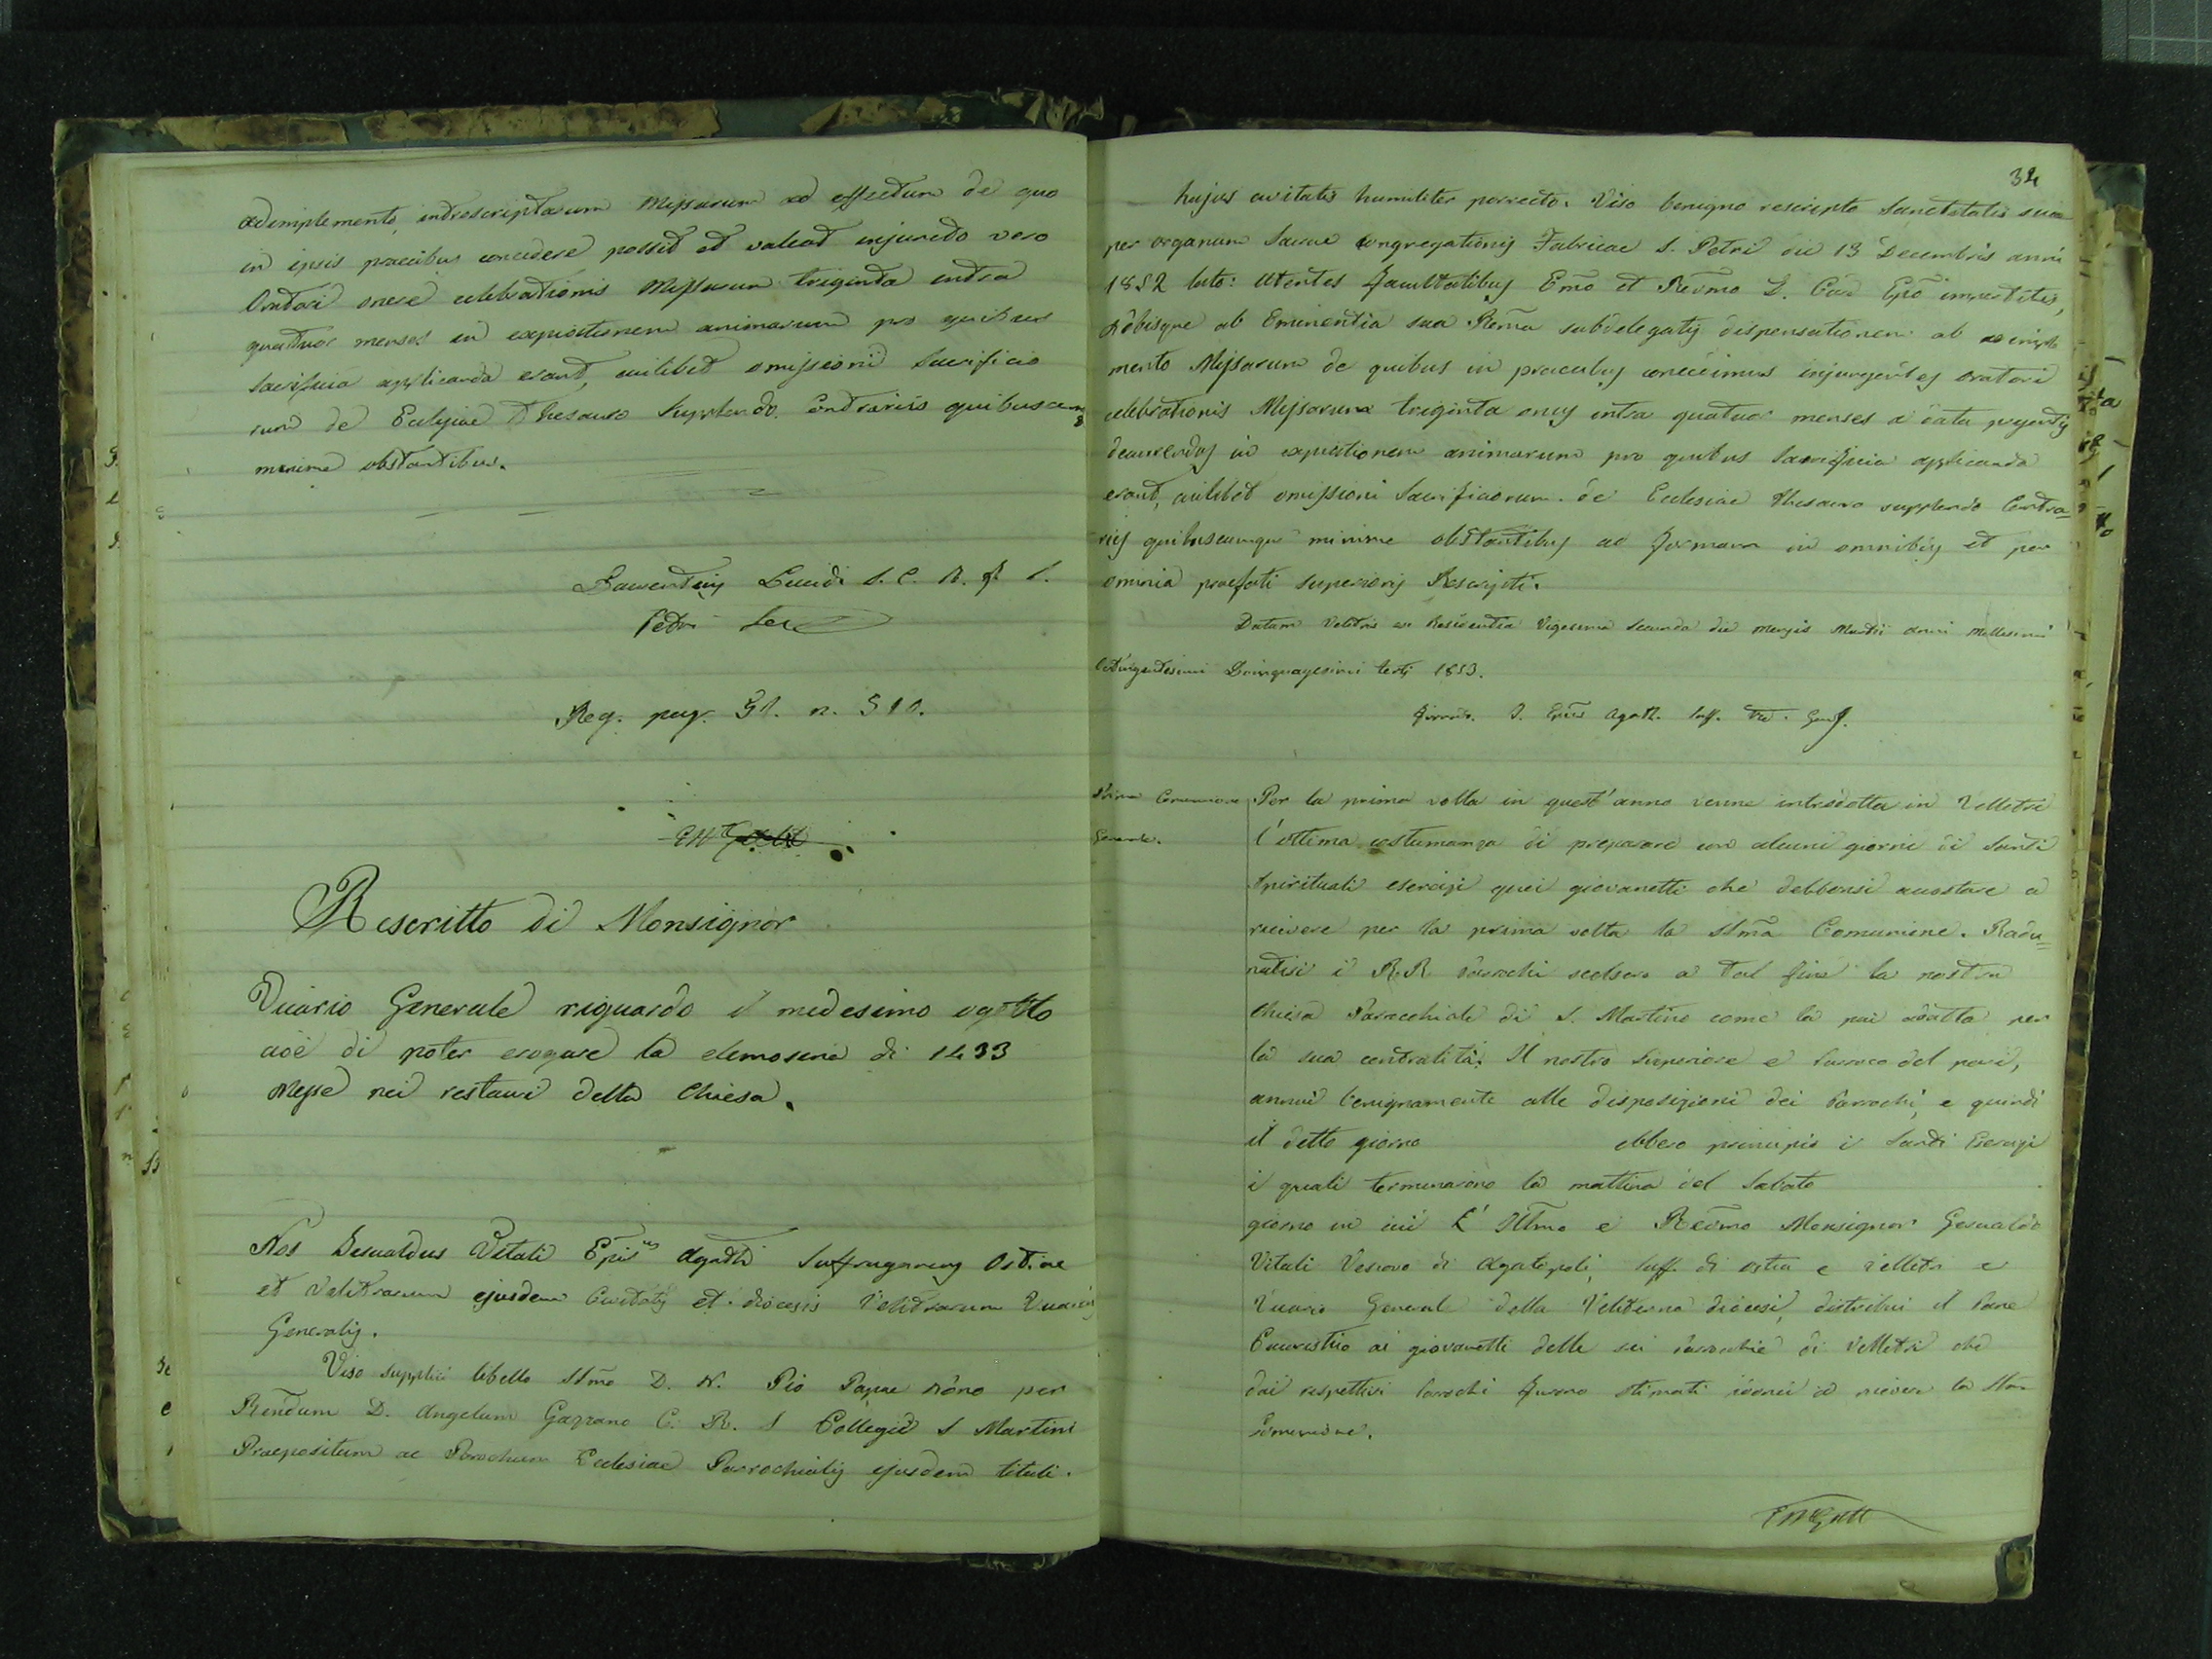 adimplemento, introscriptarum Missarum ad effectum de quo
in ipsis praecibus concedere possit et valeat injuncto vero
Oratori onere celebrationis Missarum triginta intra
quatuor menses in expiationem animarum pro quibus
Sacrificia applicanda erant, cuilibet omissioni Sacrificio
rum de Ecclesiae Thesauro supplendo. Contrariis quibuscumq
minime obstantibus.
Laurentius Lucidi S. C. R. F. S.
Petri Sec
Reg. pag. 51. n. 511.
Rescritto di Monsignor
Vicario Generale riguardo il medesimo oggetto
cioè di poter erogare la elemosina di 1433
Messe nei restauri della Chiesa.
Nos Gesualdus Vitali Epis.us Agath Suffraganeus Ostiae
et Velitrarum ejusdem Civitatis et diocesis Velitrarum Vicarius
Generalis.
Viso supplici libello SSmo D. N. Pio Papae Nono per
Rendum D. Angelum Gazzano C. R. S Collegii S Martini
Praepositum ac Parochum Ecclesiae Parrochialis ejusdem tituli.
34
hujus civitatis humiliter porrecto. Viso benigno rescripto Sanctitatis suae
per organum Sacrae Congregationis Fabricae S. Petri die 13 Decembris anni
1852 lato: Utentes facultatibus Emo et Revmo D. Card Epo impertitis,
nobisque ab Eminentia sua Rema subdelegatis dispensationem ab adimple
mento Missarum de quibus in praecibus concedimus injungentes oratori
celebrationis Missarum triginta onus intra quatuor menses a data praesentis
decurrendos in expiationem animarum pro quibus Sacrificia applicanda
erant, cuilibet omissioni Sacrificiorum de Ecclesiae Thesauro supplendo Contra=
riis quibuscumque minime obstantibus ad formam in omnibus et per
omnia praefati superioris Rescripti.
Datum Velitris ex Residentia Vigesima Secunda die Mensis Martii anni Millesimi
Octingentesimi Quinquagesimi tertij 1853.
Firmato. G. Epus Agath. Suff. Vic. Gen.
Prima Comunione
Generale.
Per la prima volta in quest'anno venne introdotta in Velletri
l'ottima costumanza di preparare con alcuni giorni di Santi
Spirituali esercizi quei giovanetti che debbonsi accostare a
ricevere per la prima volta la SSma Comunione. Radu=
natisi i R.R. Parrochi scelsero a tal fine la nostra
Chiesa Parrocchiale di S. Martino come la più adatta per
la sua centralità. Il nostro Superiore e Parroco del pari,
annuì benignamente alle disposizioni dei Parrochi, e quindi
il detto giorno ebbero principio i Santi Esercizi
i quali terminarono la mattina del Sabato
giorno in cui L' Illmo e Revmo Monsignor Gesualdo
Vitali Vescovo di Agatopoli, Suff. di Ostia e Velletri e
Vicario Generale della Veliterna diocesi, distribuì il Pane
Eucaristico ai giovanetti delle sei parrochie di Velletri che
dai rispettivi Parrochi furono stimati idonei a ricever la SSma
Comunione.